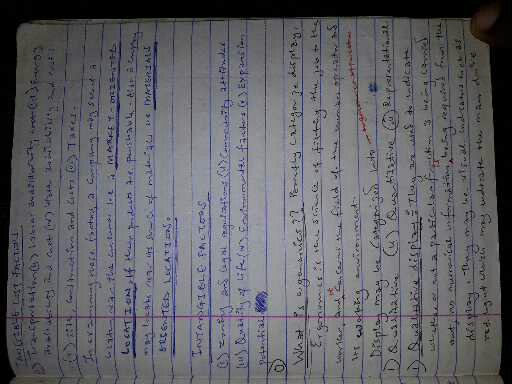 TANGIBLE COST FACTORS
(i) Transportation (ii) Labour availability cost (iii) Energy
availability and cost (iv) Water availability and cost
(v) Site, construction and costs (vi) Taxes.
In examining these factors, a company may select a
location near the customer i.e is MARKET-ORIENTED
LOCATION, if their products are perishable. Also a company
may locate near its source of materials i.e MATERIALS
ORIENTED LOCATION.
INTANGIBLE FACTORS
(i) Zoning and legal regulations (ii) Community attitudes
(iii) Quality of life (iv) Environmental factors (v) Expansion
potential
What is ergonomics?? Briefly categorize display.
Ergonomics is the science of fitting the job to the
worker, and it concerns the field of the human operator and
its working environment.
Display may be categorized into
i) Qualitative (ii) Quantitative (iii) Representational
i) Qualitative display:- They are used to indicate
whether or not a particular function is being carried
out, no numerical information being required from the
display. They may be visual indicators such as
red light which may indicate the main drive